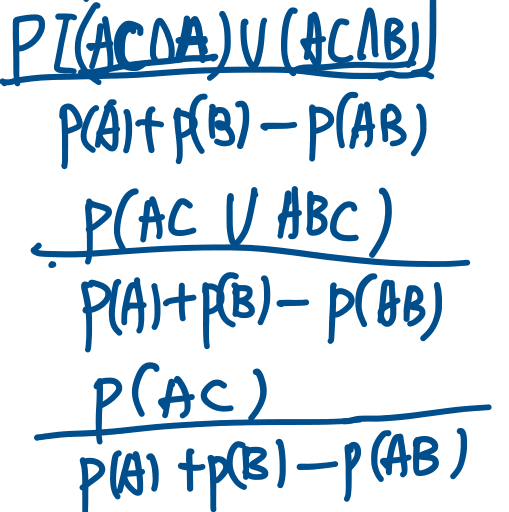 P[(AC∩A)∪(AC∩B)]
P(A)+P(B)-P(AB)
P(AC ∪ ABC)
P(A)+P(B)-P(AB)
P(AC)
P(A)+P(B)-P(AB)